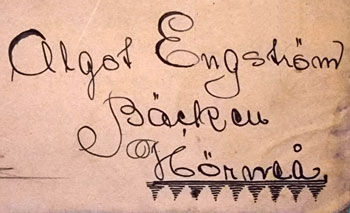 Algot Engström
Bäcken
Hörmeå